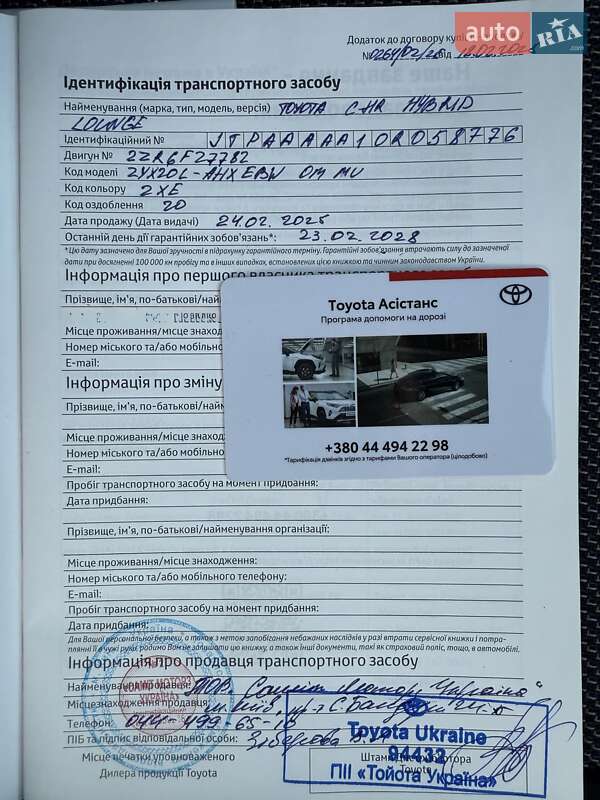 auto RIA
.com
Додаток до договору куп
№ 0264/02/25 від
Ідентифікація транспортного засобу
Найменування (марка, тип, модель, версія) TOYOTA C-HR HYBRID
LOUNGE
Ідентифікаційний № JTPAAAAA10R058776
Двигун № 2ZR6F27782
Код моделі ZYX20L-AHXEBW
Код кольору 2XE
Код оздоблення 20
Дата продажу (Дата видачі) 24.02.2025
Останній день дії гарантійних зобов'язань*: 23.02.2028
*Цю дату зазначено для Вашої зручності в підрахунку гарантійного терміну. Гарантійні зобов'язання втрачають силу до зазначеної
дати при досягненні 100 000 км пробігу та в інших випадках, встановлених цією книжкою та чинним законодавством України.
Інформація про першого власника транспортного засобу
Прізвище, ім'я, по-батькові/най
Місце проживання/місце знаход
Номер міського та/або мобільно
E-mail:
Інформація про зміну
Прізвище, ім'я, по-батькові/най
Місце проживання/місце знаход
Номер міського та/або мобільно
E-mail:
Пробіг транспортного засобу на момент придбання:
Дата придбання:
Toyota Асістанс
Програма допомоги на дорозі
+380 44 494 22 98
*Тарифікація дзвінків згідно з тарифами Вашого оператора (цілодобово)
Прізвище, ім'я, по-батькові/найменування організації:
Місце проживання/місце знаходження:
Номер міського та/або мобільного телефону:
E-mail:
Пробіг транспортного засобу на момент придбання:
Дата придбання:
Для Вашої персональної безпеки, а також з метою запобігання небажаних наслідків у разі втрати сервісної книжки і потра-
плянні її в чужі руки, радимо Вам не залишати цю книжку, а також інші документи, такі як страховий поліс, тощо, в автомобілі.
Інформація про продавця транспортного засобу
Найменування продавця: ТОВ "Саміт Моторз Україна"
Місцезнаходження продавця: м. Київ
Телефон: 044 499-65-10
ПІБ та підпис відповідальної особи:
Місце печатки уповноваженого
Дилера продукції Toyota
Штамп Дистриб'ютора
Toyota
Toyota Ukraine
94432
ПІІ «Тойота Україна»
САМІТ МОТОРЗ
УКРАЇНА